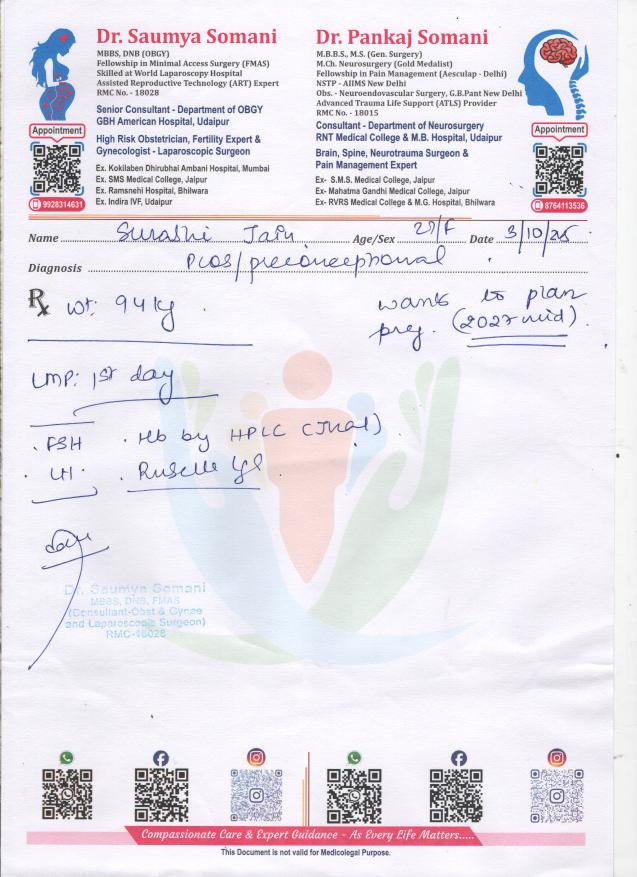 Dr. Saumya Somani
MBBS, DNB (OBGY)
Fellowship in Minimal Access Surgery (FMAS)
Skilled at World Laparoscopy Hospital
Assisted Reproductive Technology (ART) Expert
RMC No. - 18028
Senior Consultant - Department of OBGY
GBH American Hospital, Udaipur
High Risk Obstetrician, Fertility Expert &
Gynecologist - Laparoscopic Surgeon
Ex. Kokilaben Dhirubhai Ambani Hospital, Mumbai
Ex. SMS Medical College, Jaipur
Ex. Ramsnehi Hospital, Bhilwara
Ex. Indira IVF, Udaipur
Appointment
9928314631
Dr. Pankaj Somani
M.B.B.S., M.S. (Gen. Surgery)
M.Ch. Neurosurgery (Gold Medalist)
Fellowship in Pain Management (Aesculap - Delhi)
NSTP - AIIMS New Delhi
Obs. - Neuroendovascular Surgery, G.B.Pant New Delhi
Advanced Trauma Life Support (ATLS) Provider
RMC No. - 18015
Consultant - Department of Neurosurgery
RNT Medical College & M.B. Hospital, Udaipur
Brain, Spine, Neurotrauma Surgeon &
Pain Management Expert
Ex- S.M.S. Medical College, Jaipur
Ex- Mahatma Gandhi Medical College, Jaipur
Ex- RVRS Medical College & M.G. Hospital, Bhilwara
Appointment
8764113536
Name Surabhi Jain Age/Sex /F Date 3/10/25
Diagnosis PCOS/preconceptional
Rx wt: 94 kg
wants to plan
preg. (2027 mid).
LMP: 1st day
. FSH . Hb by HPLC
. LH . Rubella IgG
Dr. Saumya Somani
MBBS, DNB, FMAS
(Consultant-Obst & Gynae
and Laparoscopic Surgeon)
RMC-18028
Compassionate Care & Expert Guidance - As Every Life Matters.....
This Document is not valid for Medicolegal Purpose.